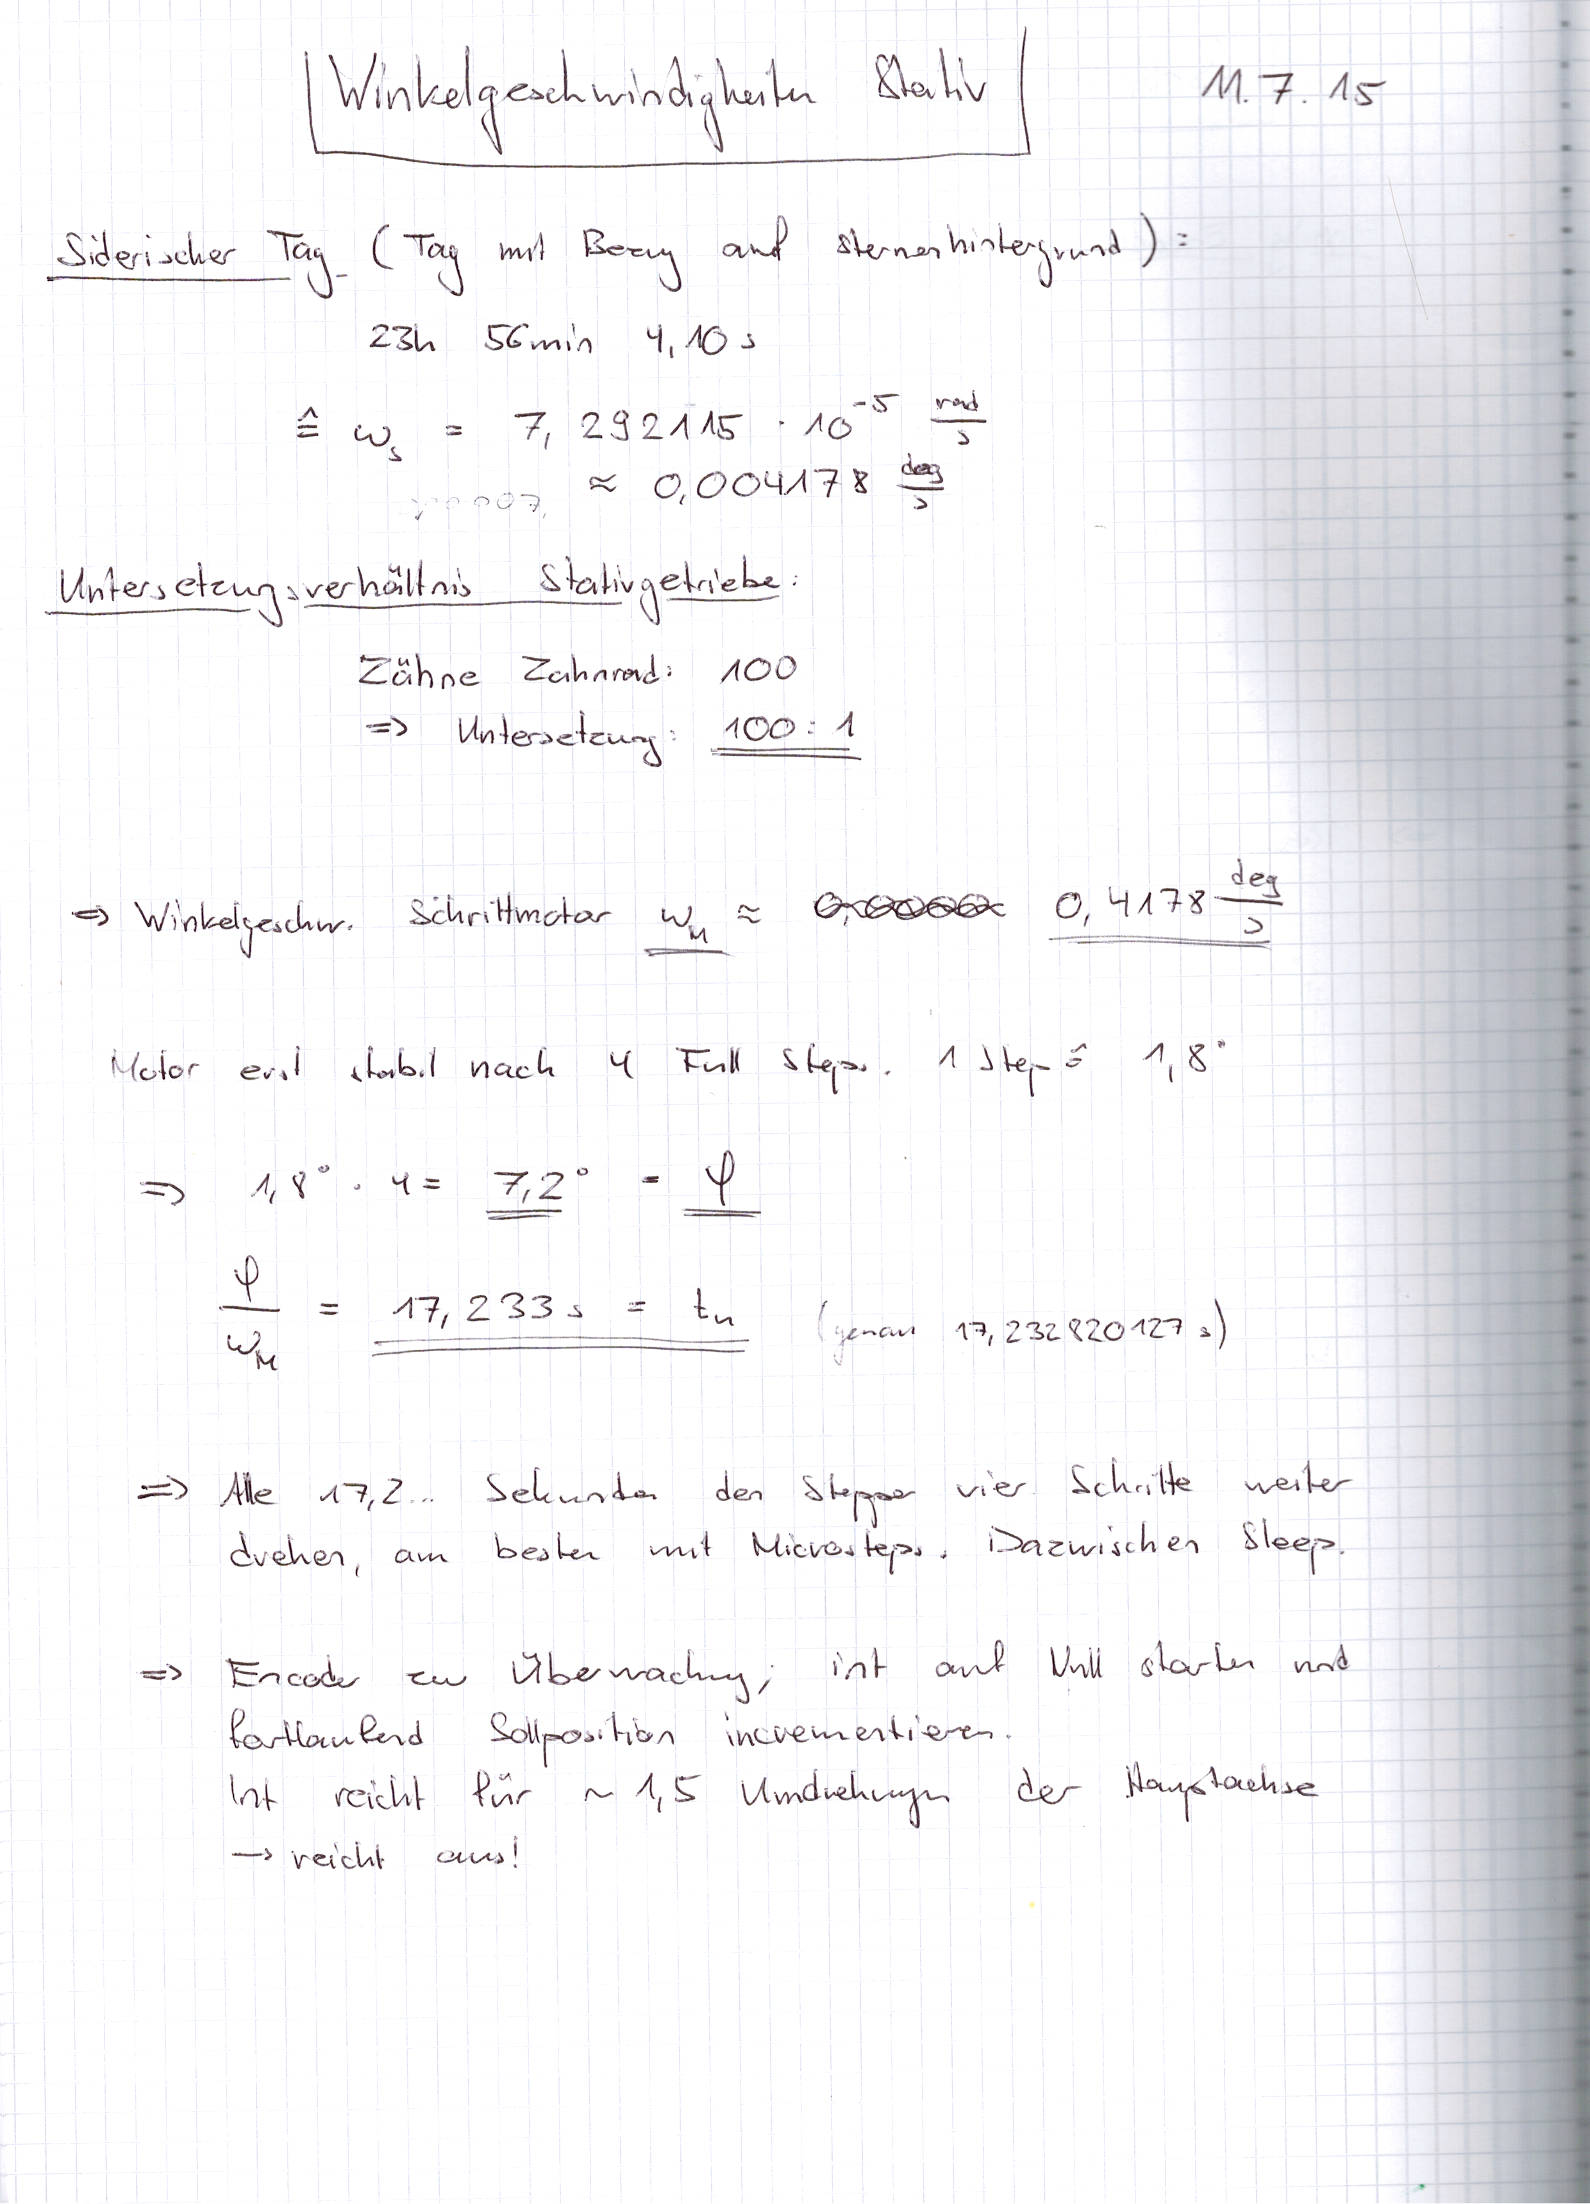 Winkelgeschwindigkeiten Stativ 11.7.15
Siderischer Tag (Tag mit Bezug auf Sternenhintergrund) =
23h 56min 4,10 s
≙ ω_s = 7,292115 · 10^-5 rad/s
≈ 0,004178 deg/s
Untersetzungsverhältnis Stativgetriebe:
Zähne Zahnrad: 100
=> Untersetzung: 100 : 1
=> Winkelgeschw. Schrittmotor ω_M ≈ 0,4178 deg/s
Motor erst stabil nach 4 Full Steps. 1 Step ≙ 1,8°
=> 1,8° · 4 = 7,2° = φ
φ/ω_M = 17,233 s = t_u (genau 17,232820127 s)
=> Alle 17,2... Sekunden den Stepper vier Schritte weiter
drehen, am besten mit Microsteps. Dazwischen Sleep.
=> Encoder zur Überwachung; int auf Null starten und
fortlaufend Sollposition incrementieren.
Int reicht für ~ 1,5 Umdrehungen der Hauptachse
→ reicht aus!